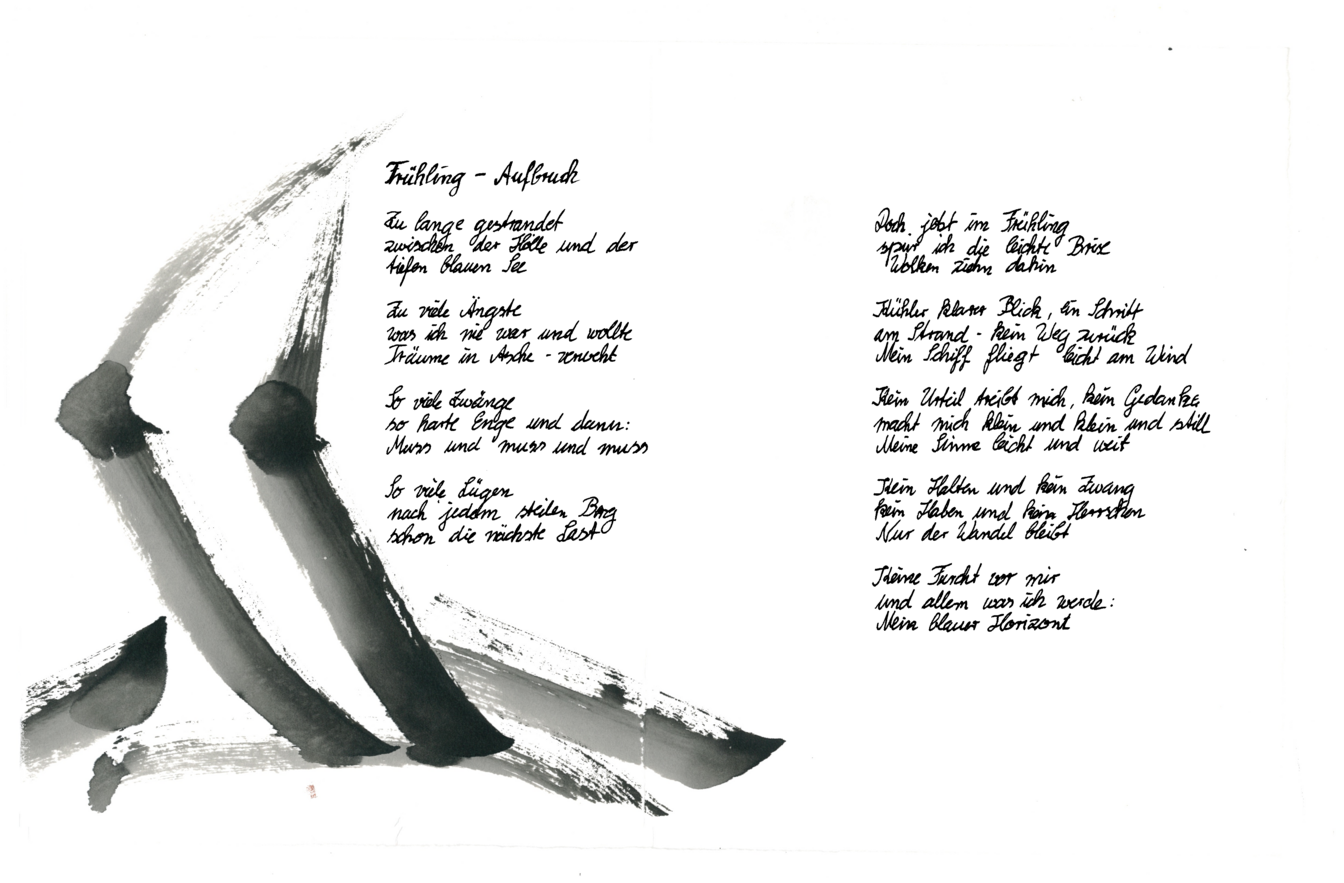 Frühling – Aufbruch
Zu lange gestrandet
zwischen der Hölle und der
tiefen blauen See
Zu viele Ängste
was ich nie war und wollte
Träume in Asche - verweht
So viele Zwänge
so harte Enge und dann:
Muss und muss und muss
So viele Lügen
nach jedem steilen Berg
schon die nächste Last
Doch jetzt im Frühling
spür ich die leichte Brise
Wolken ziehn dahin
Kühler klarer Blick, ein Schritt
am Strand - kein Weg zurück
Mein Schiff fliegt leicht am Wind
Kein Urteil treibt mich, kein Gedanke
macht mich klein und klein und still
Meine Sinne leicht und weit
Kein Halten und kein Zwang
kein Haben und kein Herrschen
Nur der Wandel bleibt
Keine Furcht vor mir
und allem was ich werde:
Mein blauer Horizont